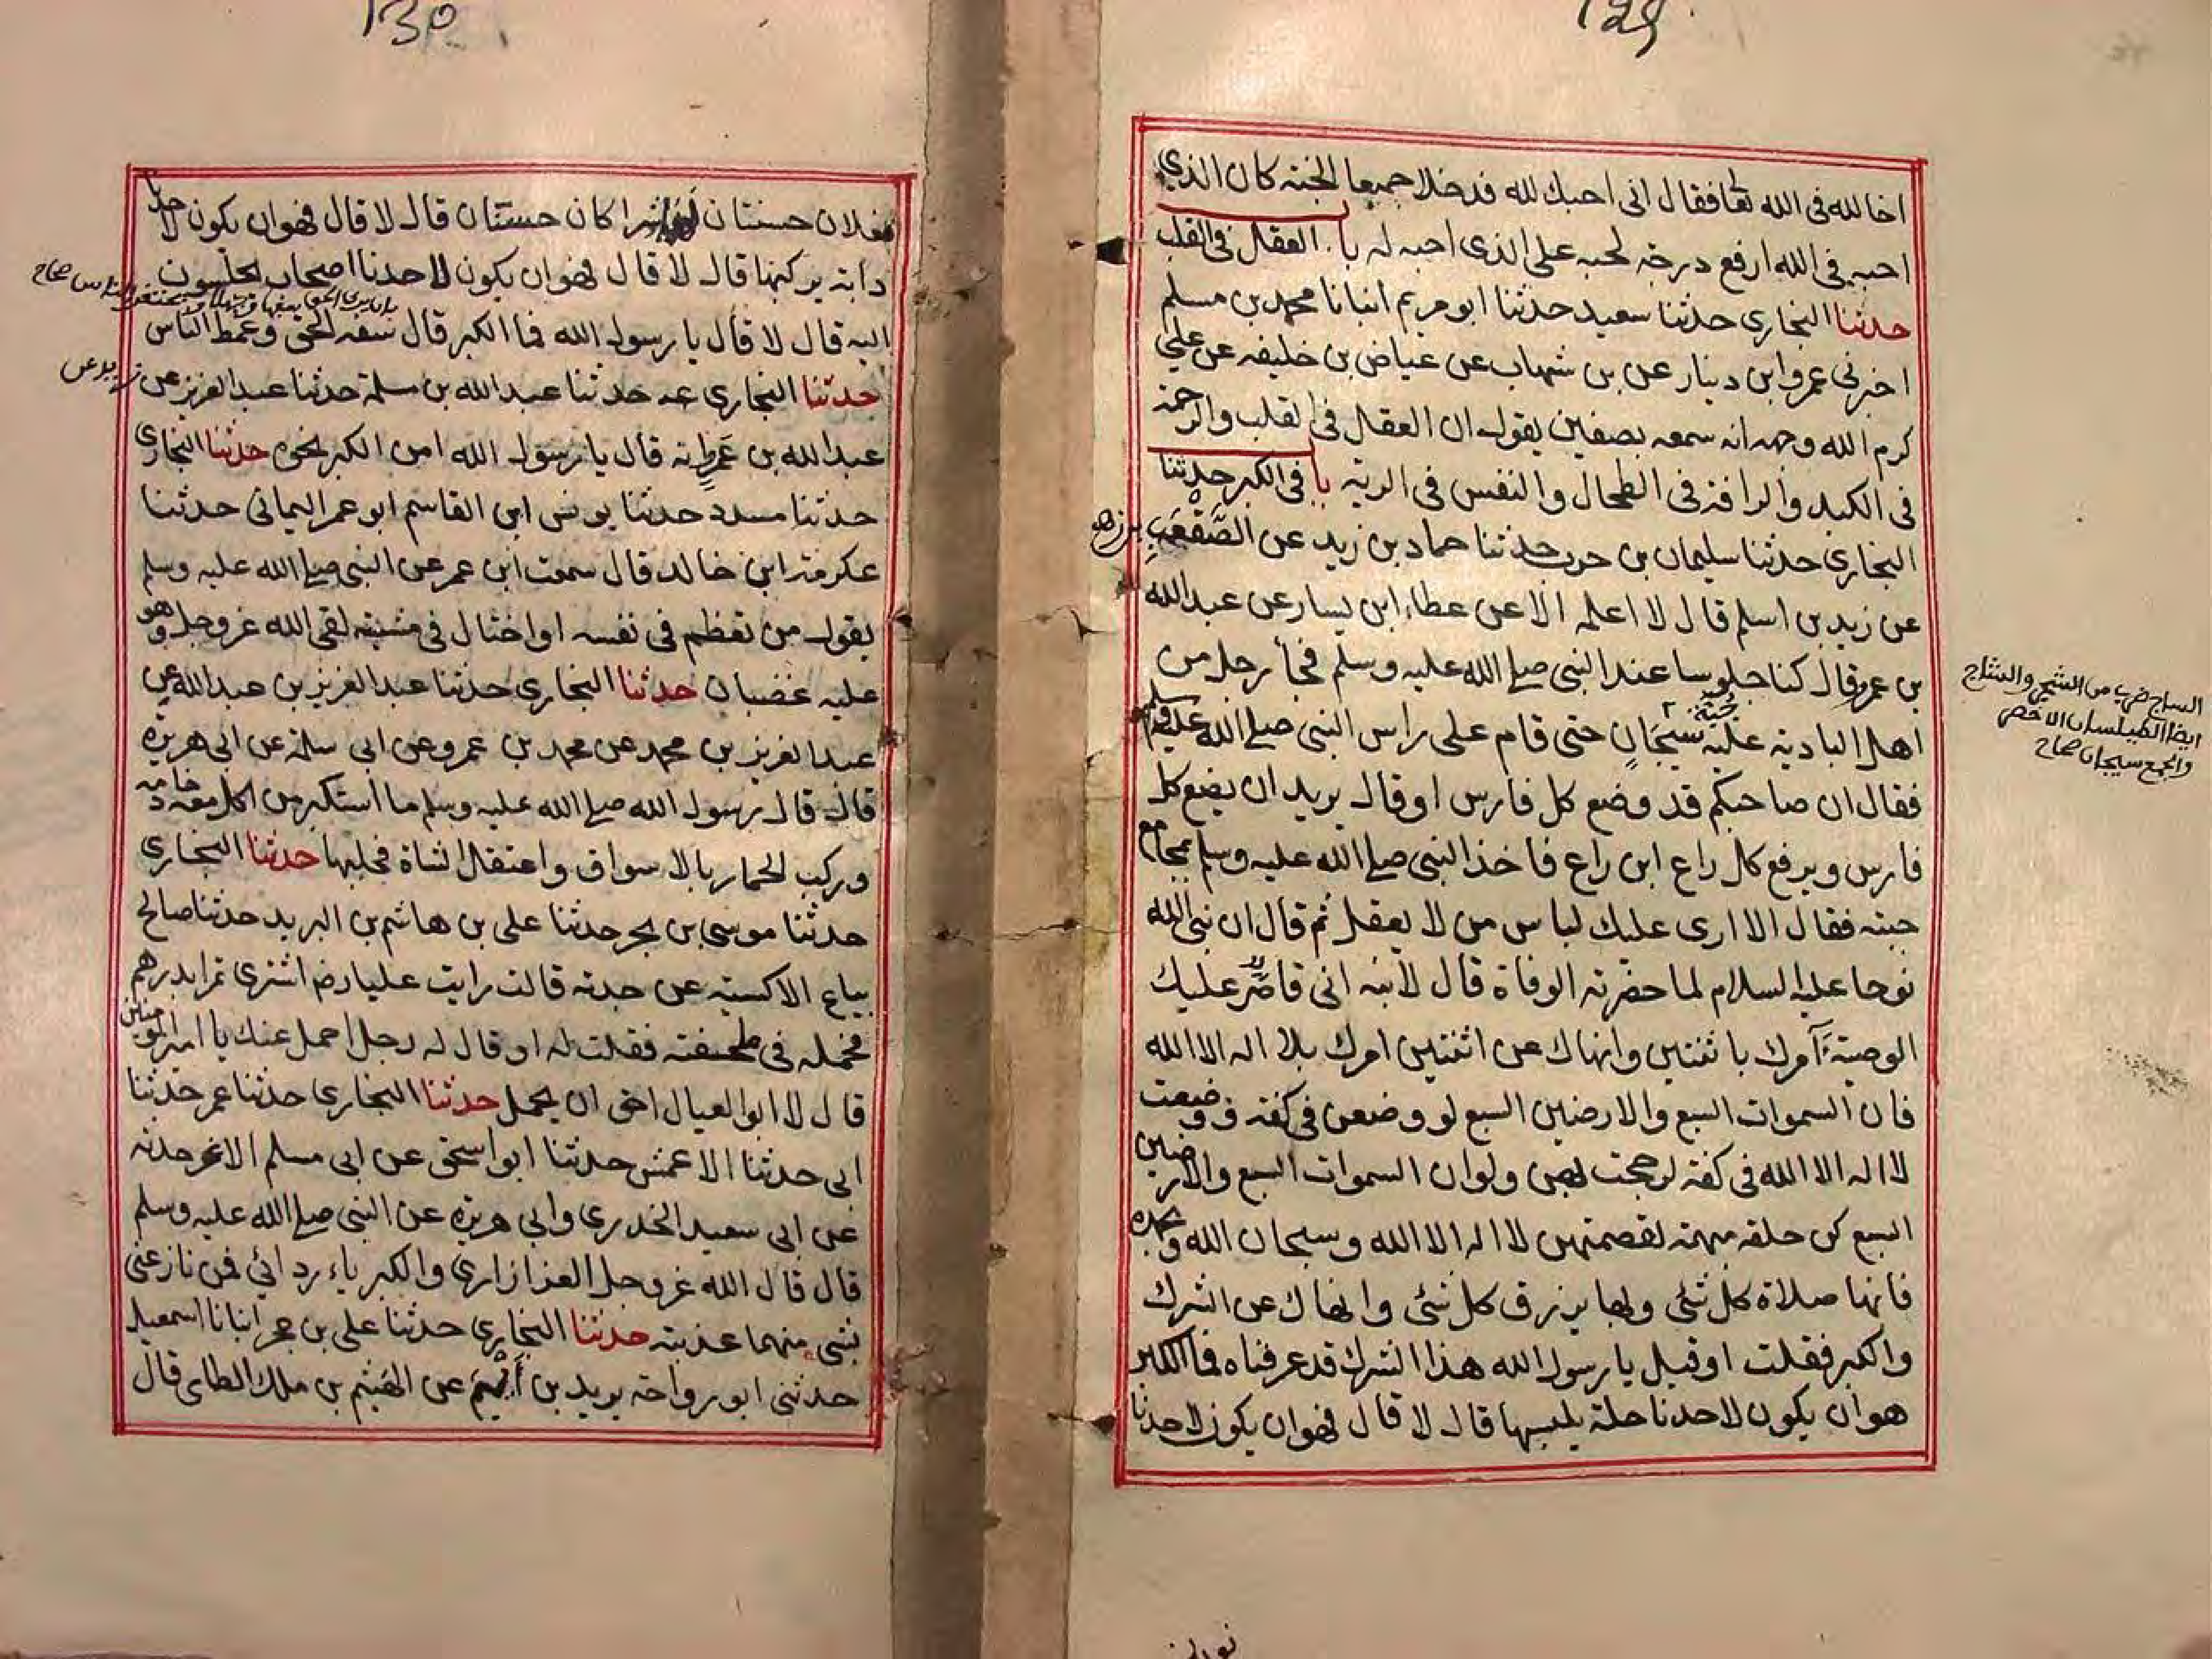 129
اخا لله فى الله تعا فقال انى احبك لله فدخلا جميعا الجنه كان الذي
احبه فى الله ارفع درجة لحبه على الذى احبه له با العقل فى القلب
حدثنا البخارى حدثنا سعيد حدثنا ابو مريم انبانا محمد بن مسلم
اخبرنى عمرو ابن دينار عن بن شهاب عن عياض بن خليفه عن علي
كرم الله وجهه انه سمعه بصفين يقول ان العقل فى القلب والرحمة
فى الكبد والرافة فى الطحال والنفس فى الرية با فى الكبر حدثنا
البخارى حدثنا سليمان بن حرب حدثنا حماد بن زيد عن الصَّقْعَبِ بن زهير
عن زيد بن اسلم قال لا اعلمه الا عن عطاء ابن يسار عن عبد الله
بن عمرو قال كنا جلوسا عند النبى صلى الله عليه وسلم فجأ رجل من
اهل البادية عليه جُبَّة سيجانٍ حتى قام على راس النبى صلى الله عليه وسلم
فقال ان صاحبكم قد وضع كل فارس او قال يريد ان يضع كل
فارس ويرفع كل راع ابن راع فاخذ النبى صلى الله عليه وسلم بمجامع
جبته فقال الا ارى عليك لباس من لا يعقل ثم قال ان نبى الله
نوحا عليه السلام لما حضرته الوفاة قال لأبنه انى قاصر عليك
الوصية آمرك باثنتين وانهاك عن اثنتين امرك بلا اله الا الله
فان السموات السبع والارضين السبع لو وضعن فى كفة ووضعت
لا اله الا الله فى كفة لرجحت بهن ولو ان السموات السبع والارضين
السبع كن حلقه مبهمة لقصمتهن لا اله الا الله وسبحان الله وبحمده
فانها صلاة كل شئى وبها يرزق كل شئى وانهاك عن الشرك
والكبر فقلت او قيل يا رسول الله هذا الشرك قد عرفناه فما الكبر
هو ان يكون لاحدنا حلة يلبسها قال لا قال فهو ان يكون لاحدنا
الساج ضرب من الشجر والساج
ايضا الطيلسان الاخضر
والجمع سيجان صحاح
130
نعلان حسنتان شراكان حسنتان قال لا قال فهو ان يكون لاحدنا
دابة يركبها قال لا قال فهو ان يكون لاحدنا اصحاب يجلسون
اليه قال لا قال يا رسول الله فما الكبر قال سفه الحق وغمط الناس
حدثنا البخارى عنه حدثنا عبد الله بن مسلمة حدثنا عبد العزيز عن زيد عن
عبد الله بن عمرو انه قال يا رسول الله امن الكبر نحوه حدثنا البخارى
حدثنا مسدد حدثنا يونس ابن القاسم ابو عمر اليمانى حدثنا
عكرمة ابن خالد قال سمعت ابن عمر عن النبى صلى الله عليه وسلم
يقول من تعظم فى نفسه او اختال فى مشيته لقى الله عز وجل وهو
عليه غضبان حدثنا البخارى حدثنا عبد العزيز بن عبد الله عن
عبد العزيز بن محمد عن محمد بن عمرو عن ابى سلمة عن ابى هريرة
قال قال رسول الله صلى الله عليه وسلم ما استكبر من اكل معه خادمه
وركب الحمار بالاسواق واعتقل الشاة فحلبها حدثنا البخارى
حدثنا موسى بن بحر حدثنا على بن هاشم بن البريد حدثنا صالح
بياع الاكسية عن جدته قالت رايت عليا رض اشترى تمرا بدرهم
فحمله فى ملحفته فقلت له او قال له رجل احمل عنك يا امير المومنين
قال لا ابو العيال احق ان يحمل حدثنا البخارى حدثنا عمر حدثنا
ابى حدثنا الاعمش حدثنا ابو اسحق عن ابى مسلم الاغر حدثه
عن ابى سعيد الخدرى وابى هريرة عن النبى صلى الله عليه وسلم
قال قال الله عز وجل العز ازارى والكبرياء ردائي فمن نازعنى
بشى منهما عذبته حدثنا البخارى حدثنا على بن حجر انبانا اسمعيل
حدثنى ابو رواحة يزيد بن أيهم عن الهيثم بن ملك الطاى قال